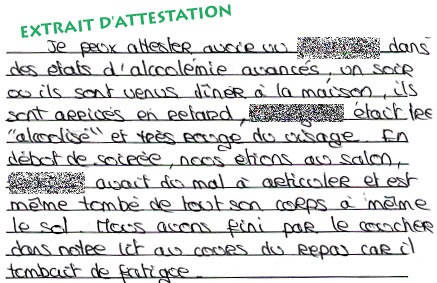 EXTRAIT D'ATTESTATION
Je peux attester avoir vu dans
des etats d'alcoolémie avancés, un soir
ou ils sont venus dîner à la maison, ils
sont arrivés en retard, était tres
"alcoolisé" et très rouge du visage. En
début de soirée, nous étions au salon,
avait du mal à articuler et est
même tombé de tout son corps à même
le sol. Nous avons fini par le coucher
dans notre lit au cours du repas car il
tombait de fatigue.